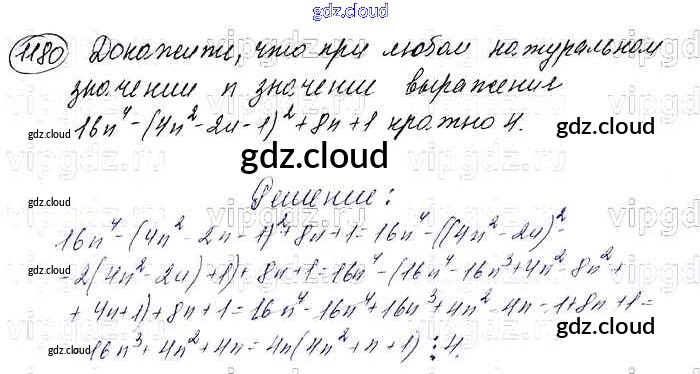 gdz.cloud
1180 Докажите, что при любом натуральном
значении n значение выражения
16n⁴-(4n²-2n-1)²+8n+1 кратно 4.
gdz.cloud
gdz.cloud
gdz.cloud
Решение:
gdz.cloud
gdz.cloud
16n⁴-(4n²-2n-1)²+8n+1=16n⁴-((4n²-2n)²-
-2(4n²-2n)+1)+8n+1=16n⁴-(16n⁴-16n³+4n²-8n²+
gdz.cloud
+4n+1)+8n+1=16n⁴-16n⁴+16n³+4n²-4n-1+8n+1=
gdz.cloud
gdz.cloud
=16n³+4n²+4n=4n(4n²+n+1)⋮4.